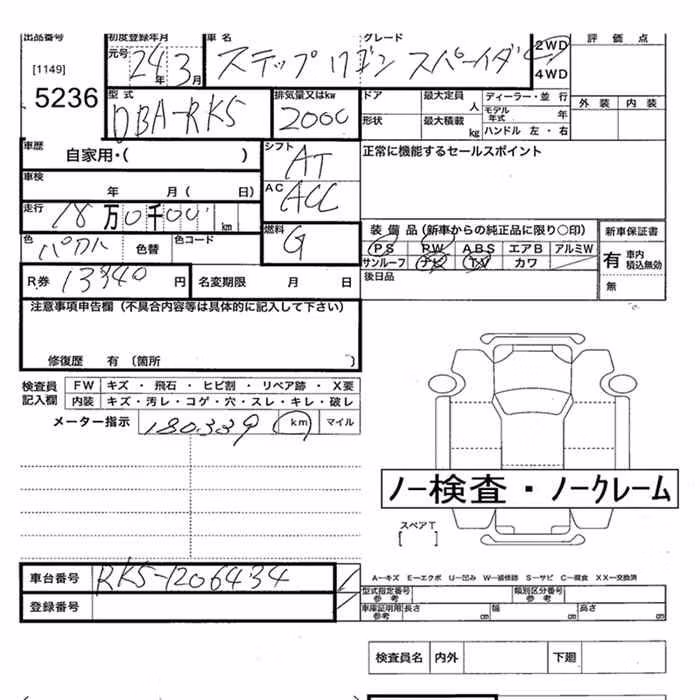 出品番号 初度登録年月 車名 グレード 評価点
[1149] 元号 24年 3月 ステップワゴン スパーイダ 2WD
5236 4WD
型式 排気量又はkw ドア 最大定員 人 ディーラー・並行 外装 内装
DBA-RK5 2000 形状 最大積載 kg モデル年式 年
ハンドル 左・右
車歴 シフト 正常に機能するセールスポイント
自家用・( ) AT
車検 年 月( 日) AC AAC
走行 18万0千00 km 装備品(新車からの純正品に限り○印) 新車保証書
色 色替 色コード 燃料 G PS PW ABS エアB アルミW 有 車内積込無効
サンルーフ ナビ TV カワ 無
R券 13340円 名変期限 月 日 後日品
注意事項申告欄(不具合内容等は具体的に記入して下さい)
修復歴 有 (箇所 )
検査員記入欄 FW キズ・飛石・ヒビ割・リペア跡・X要
内装 キズ・汚レ・コゲ・穴・スレ・キレ・破レ
メーター指示 180339 km マイル
ノー検査・ノークレーム
スペアT
[ ]
車台番号 RK5-1206434
A-キズ E-エクボ U-凹み W-補修跡 S-サビ C-腐食 XX-交換済
登録番号 型式指定番号 参考 類別区分番号 参考
車庫証明用 参考 長さ cm 幅 cm 高さ cm
検査員名 内外 下廻